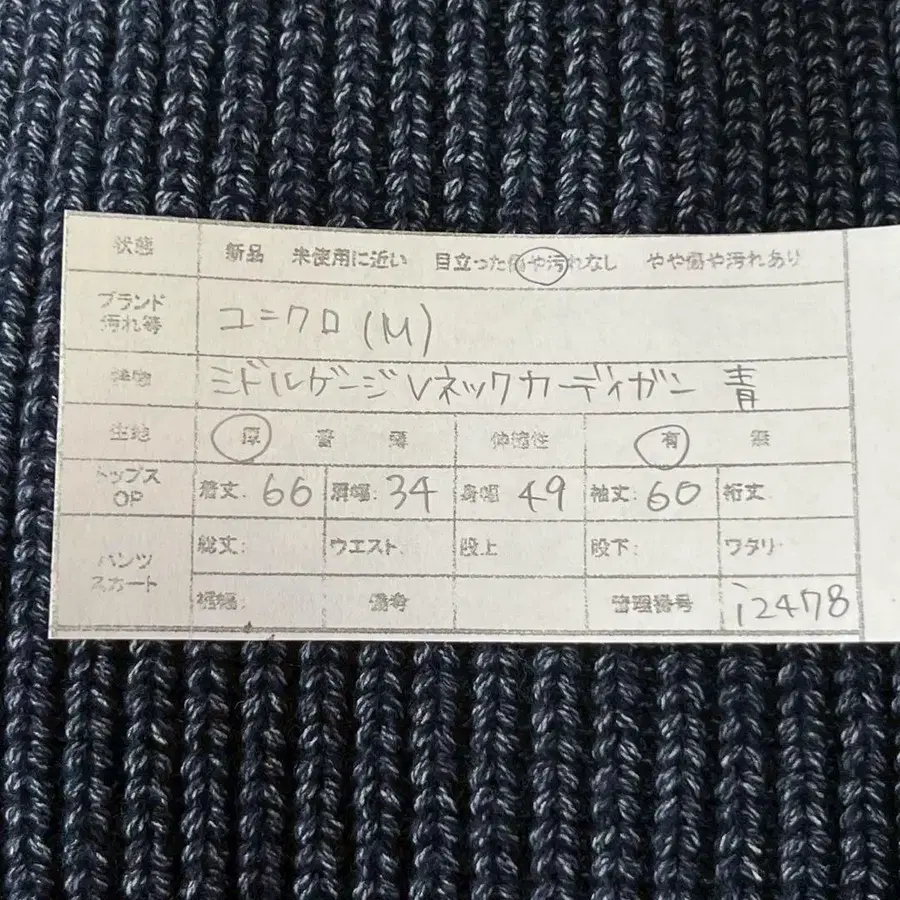 状態 新品 未使用に近い 目立った傷や汚れなし やや傷や汚れあり
ブランド 汚れ等 ユニクロ (M)
ミドルゲージVネックカーディガン 青
生地 厚 普 薄 伸縮性 有 無
トップス OP 着丈: 66 肩幅: 34 身幅 49 袖丈: 60 裄丈
パンツ スカート 総丈: ウエスト 股上 股下: ワタリ
裾幅: 備考 管理番号 i2478